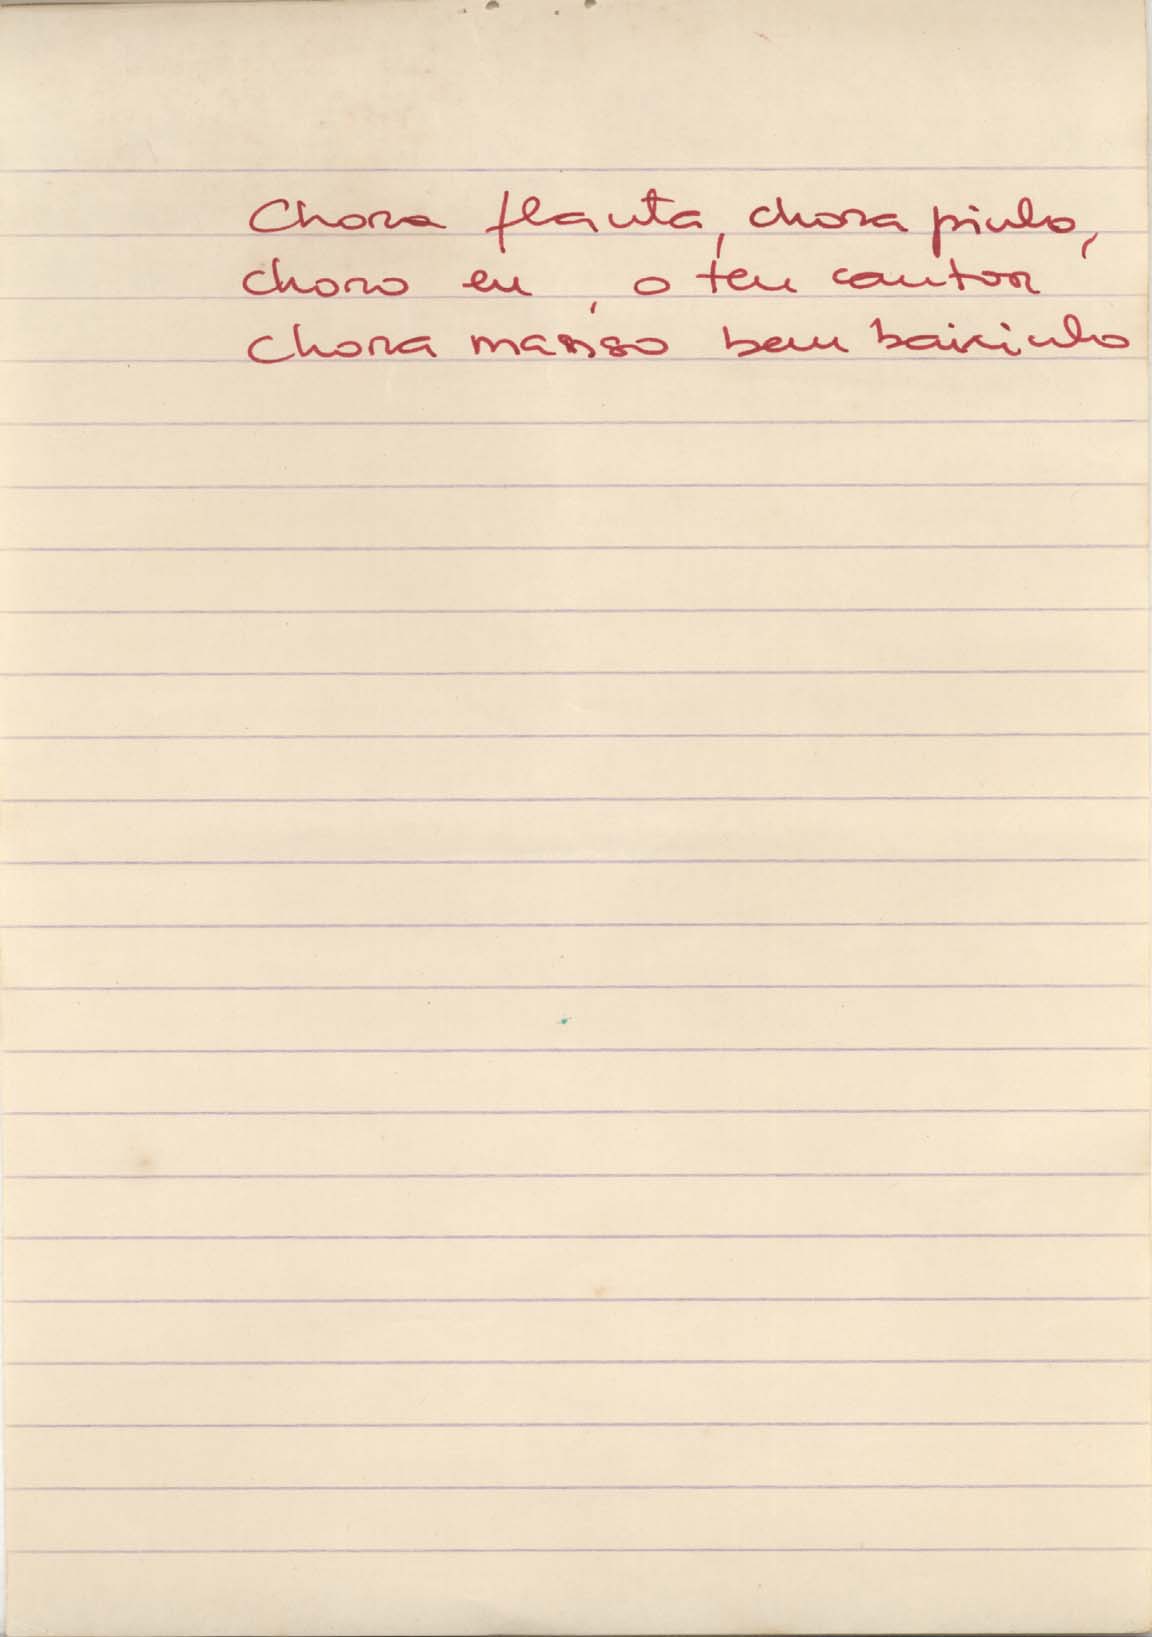 Chora flauta, chora pinho,
choro eu, o teu cantor
chora manso bem baixinho